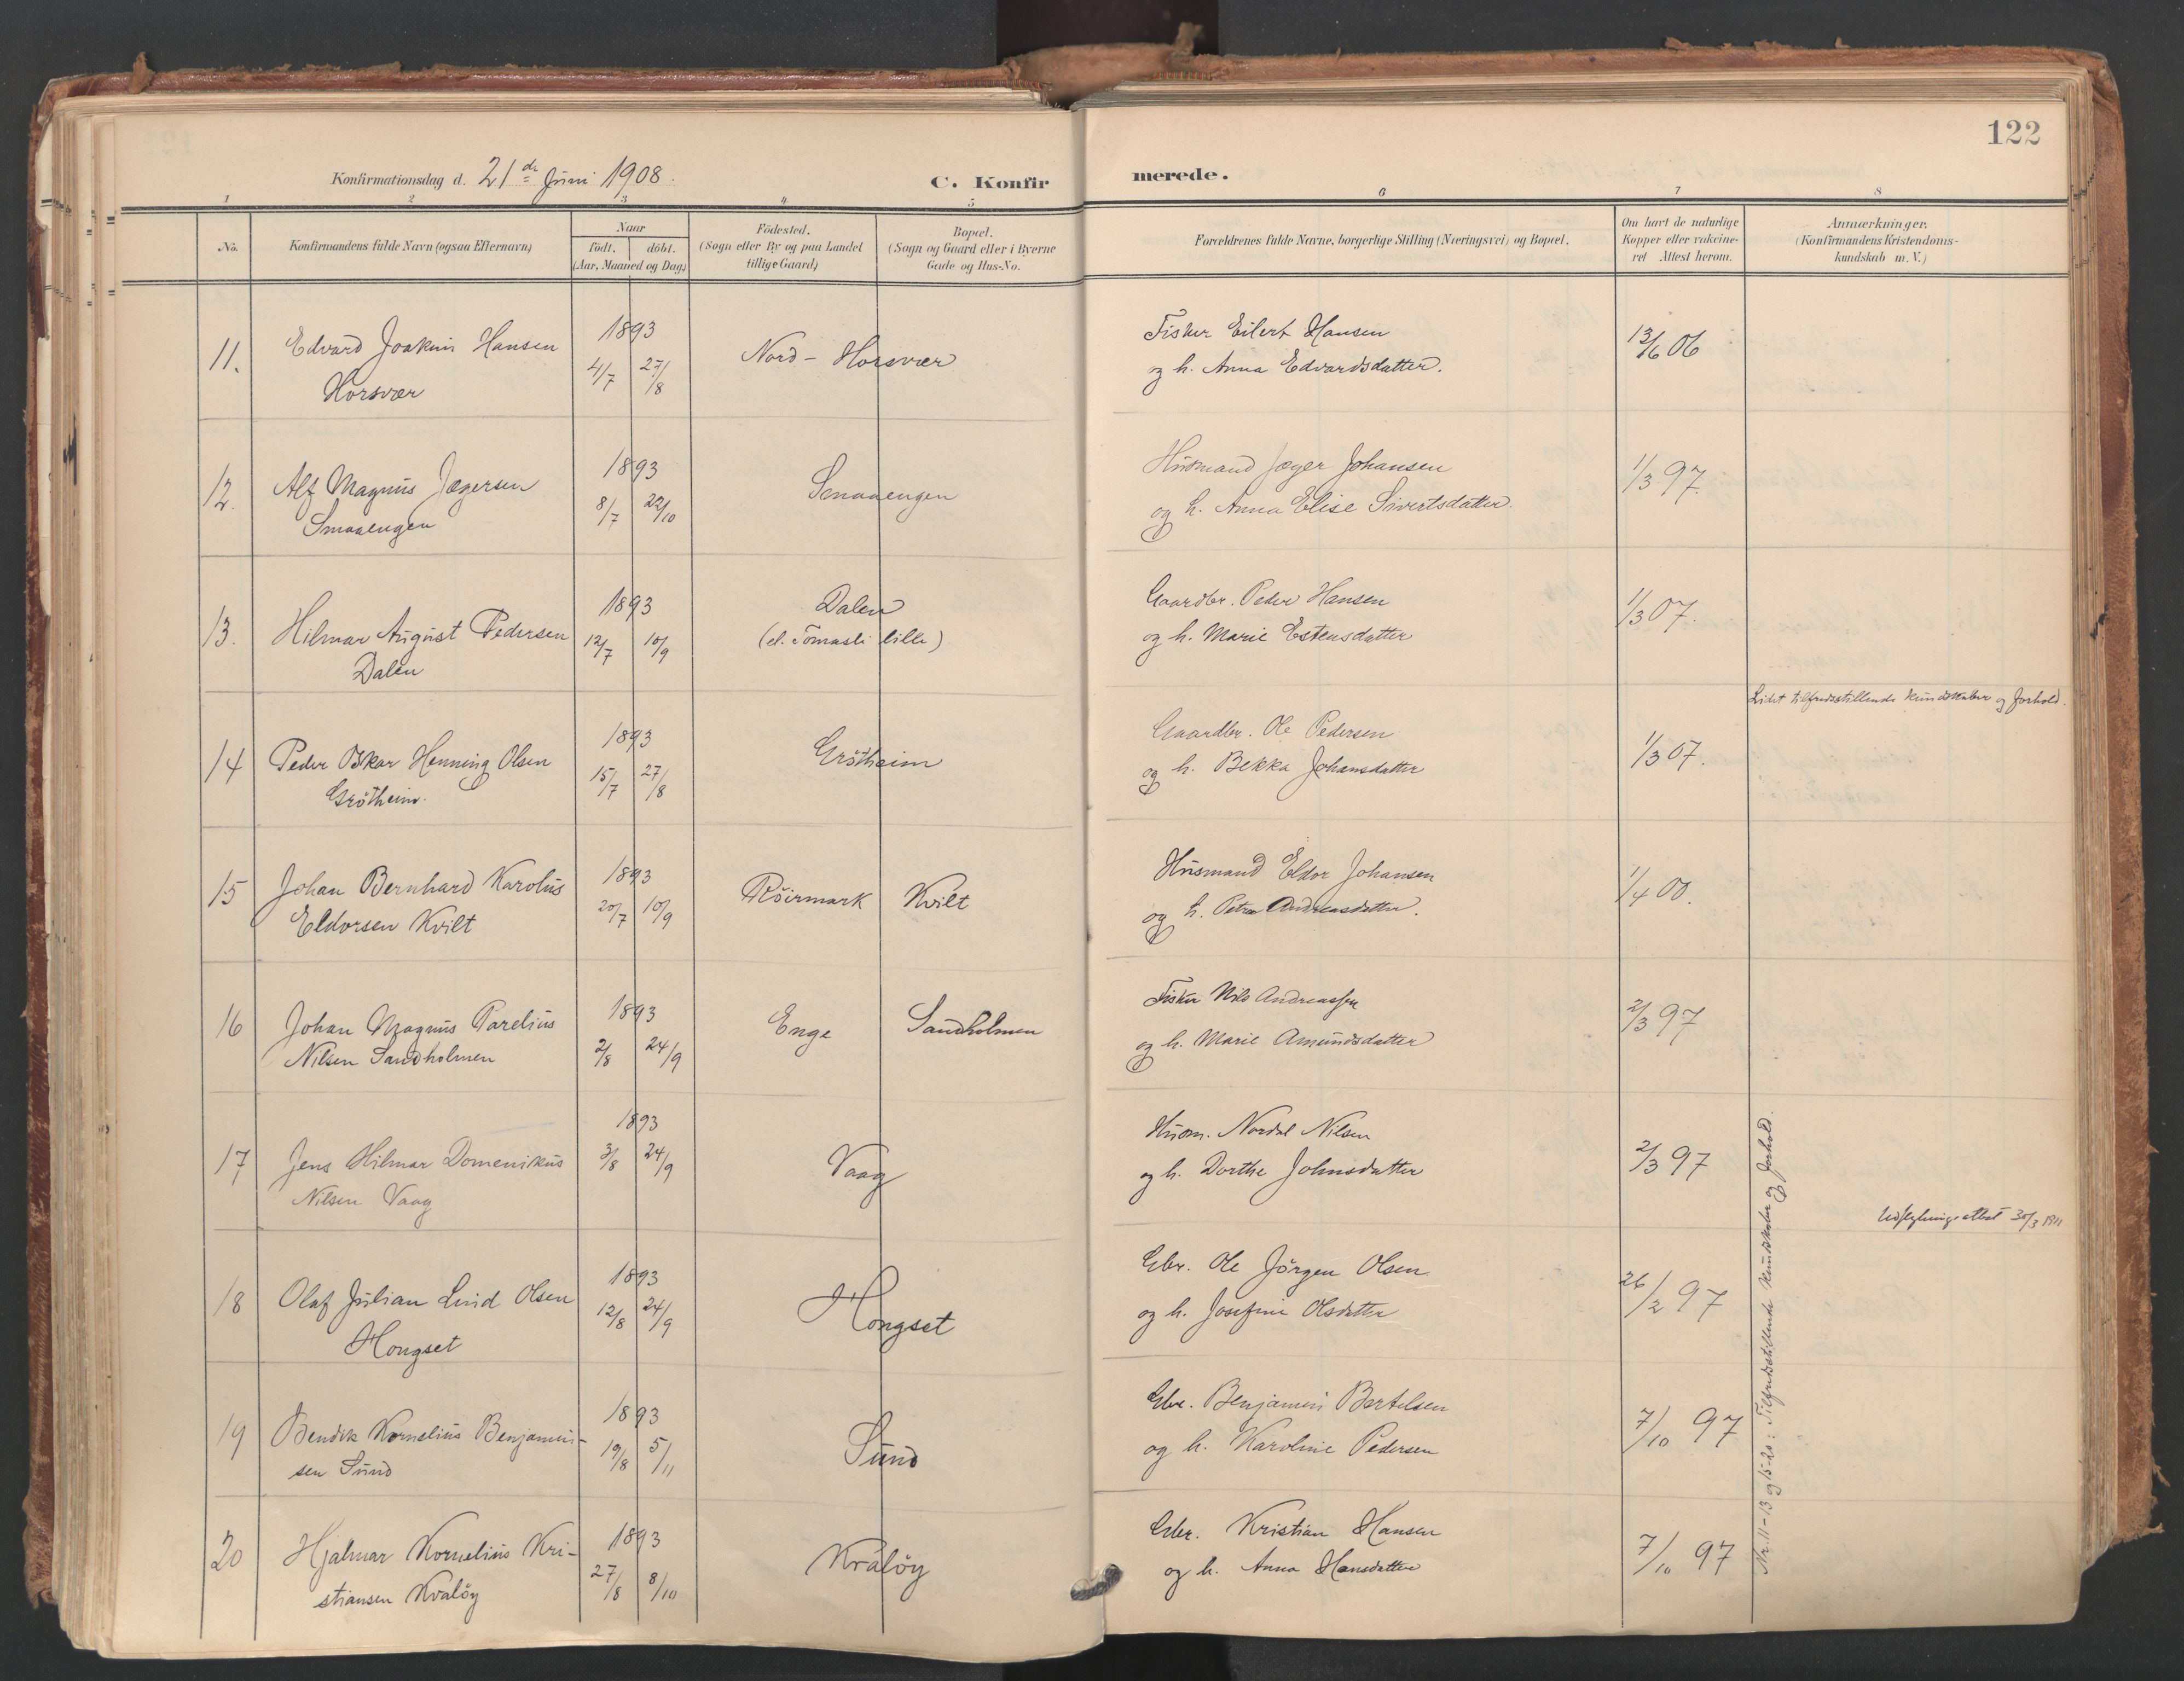 122
Konfirmationsdag d. 21de Juni 1908.
C. Konfirmerede.
1 2 3 4 5 6 7 8
No.
Konfirmandens fulde Navn (ogsaa Efternavn)
Naar
födt. döbt.
(Aar, Maaned og Dag.)
Födested.
(Sogn eller By og paa Landet
tillige Gaard)
Bopæl.
(Sogn og Gaard eller i Byerne
Gade og Hus-No.
Forældrenes fulde Navne, borgerlige Stilling (Næringsvei) og Bopæl.
Om havt de naturlige
Kopper eller vakcine-
ret Attest herom.
Anmærkninger.
(Konfirmandens Kristendoms-
kundskab m. V.)
11. Edvard Joakim Hansen
Horsvær
1893
4/7 27/8
Nord-Horsvær
Fisker Eilert Hansen
og h. Anna Edvardsdatter.
13/6 06
12. Alf Magnus Jægersen
Smaaengen
1893
8/7 22/10
Smaaengen
Husmand Jæger Johansen
og h. Anna Elise Sivertsdatter
1/3 97.
13. Hilmar August Pedersen
Dalen
1893
12/7 10/9
Dalen
(el. Tomasli lille)
Gaardbr. Peder Hansen
og h. Marie Estensdatter
1/3 07.
14 Peder Oskar Henning Olsen
Grötheim.
1893
15/7 27/8
Grötheim
Gaardbr. Ole Pedersen
og h. Bekka Johansdatter
1/3 07.
Lidet tilfredsstillende Kundskaber og Forhold.
15 Johan Bernhard Karolus
Eldorsen Kvilt
1893
20/7 10/9
Röirmark Kvilt
Husmand Eldor Johansen
og h. Petra Andreasdatter.
1/4 00.
16 Johan Magnus Parelius
Nilsen Sandholmen
1893
2/8 24/9
Enge Sandholmen
Fisker Nils Andreassen
og h. Marie Amundsdatter
2/3 97
17 Jens Hilmar Domenikus
Nilsen Vaag
1893
3/8 24/9
Vaag
Husm. Nordal Nilsen
og h. Dorthe Johnsdatter
2/3 97
Udflytningsattest 30/3 1911
18 Olaf Julian Lind Olsen
Hongset
1893
12/8 24/9
Hongset
Gbr. Ole Jörgen Olsen
og h. Josefine Olsdatter
26/2 97
19 Bendik Kornelius Benjamin-
sen Sund
1893
19/8 5/11
Sund
Gbr. Benjamin Bertelsen
og h. Karoline Pedersen
7/10 97
20 Hjalmar Kornelius Kri-
stiansen Kvalöy
1893
27/8 8/10
Kvalöy
Gbr. Kristian Hansen
og h. Anna Hansdatter
7/10 97
Nr. 11-13 og 15-20: Tilfredsstillende Kundskaber og Forhold.